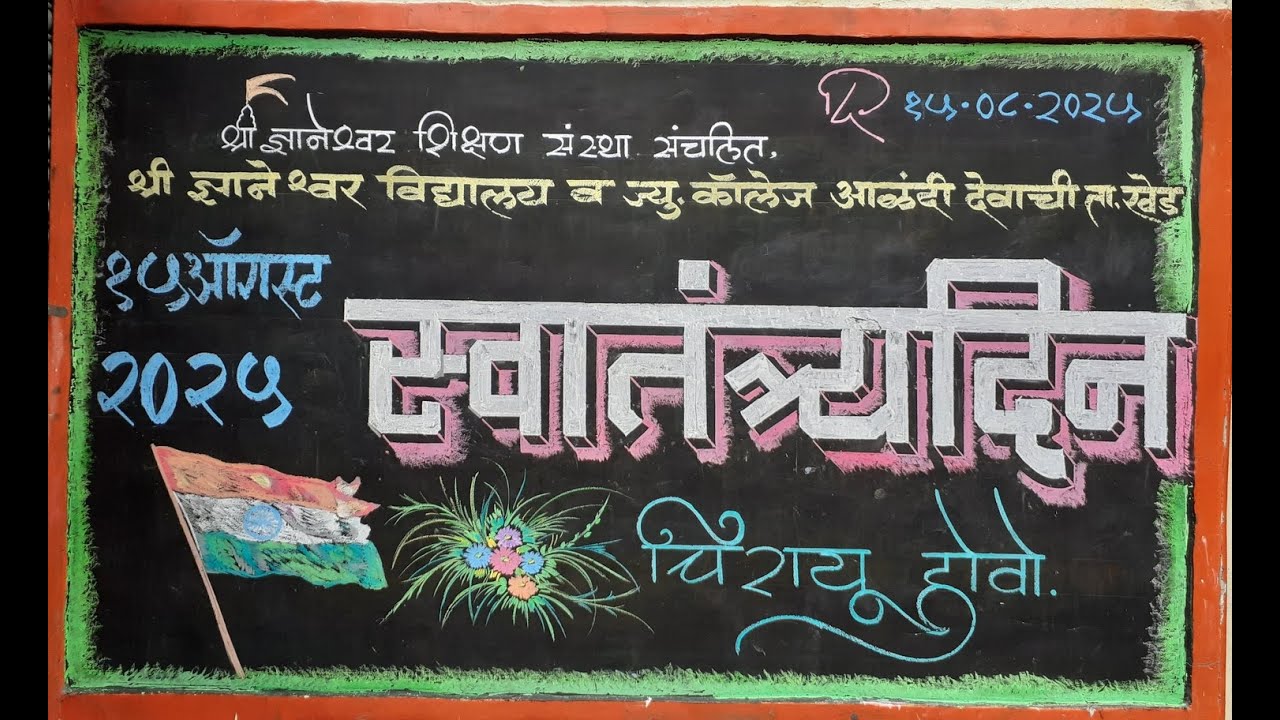 दि १५.०८.२०२५
श्री ज्ञानेश्वर शिक्षण संस्था संचलित,
श्री ज्ञानेश्वर विद्यालय व ज्यु. कॉलेज आळंदी देवाची ता. खेड
१५ ऑगस्ट
२०२५
स्वातंत्र्यदिन
चिरायू होवो.